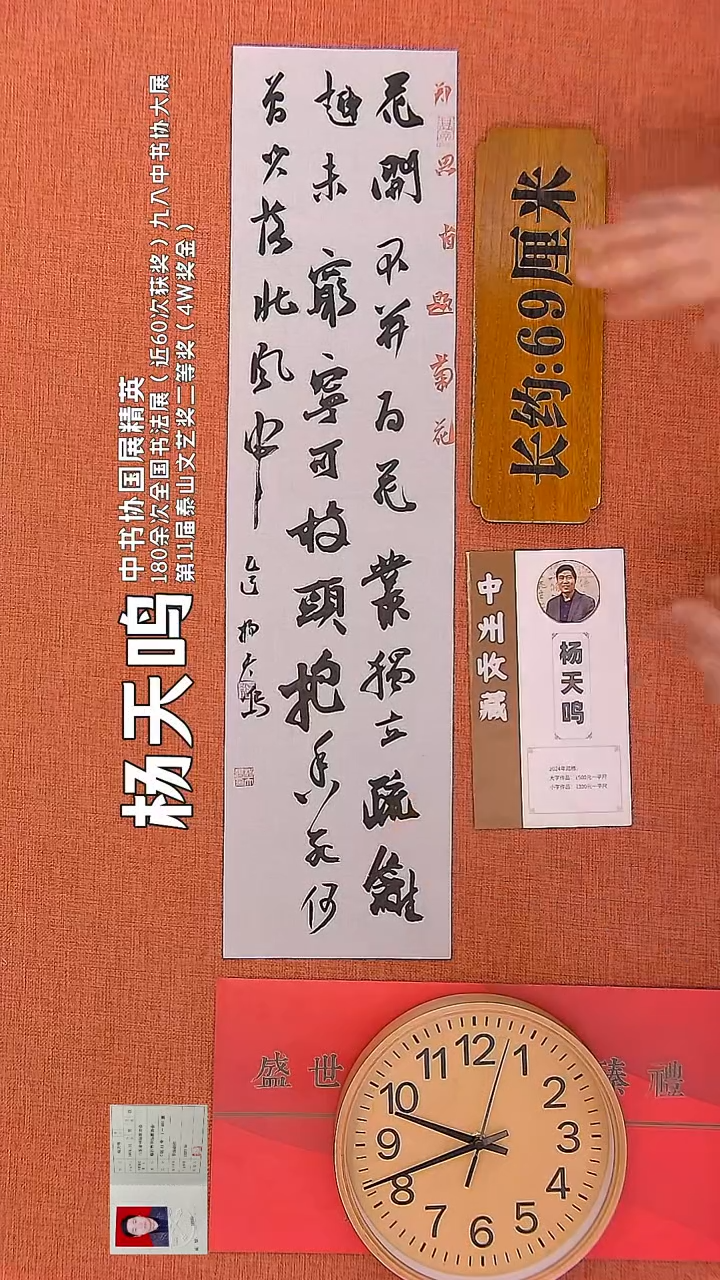 郑思肖题菊花
花開不并百花叢獨立疏籬
趣未窮寧可枝頭抱香死何
曾吹落北風中
杨天鸣
长约:69厘米
中州收藏
杨天鸣
2024年润格:
大字作品: 1500元一平尺
小字作品: 1300元一平尺
杨天鸣
中书协国展精英
180余次全国书法展(近60次获奖)九八中书协大展
第11届泰山文艺奖二等奖(4W奖金)
盛世
禮
12
1
2
3
4
5
6
7
8
9
10
11